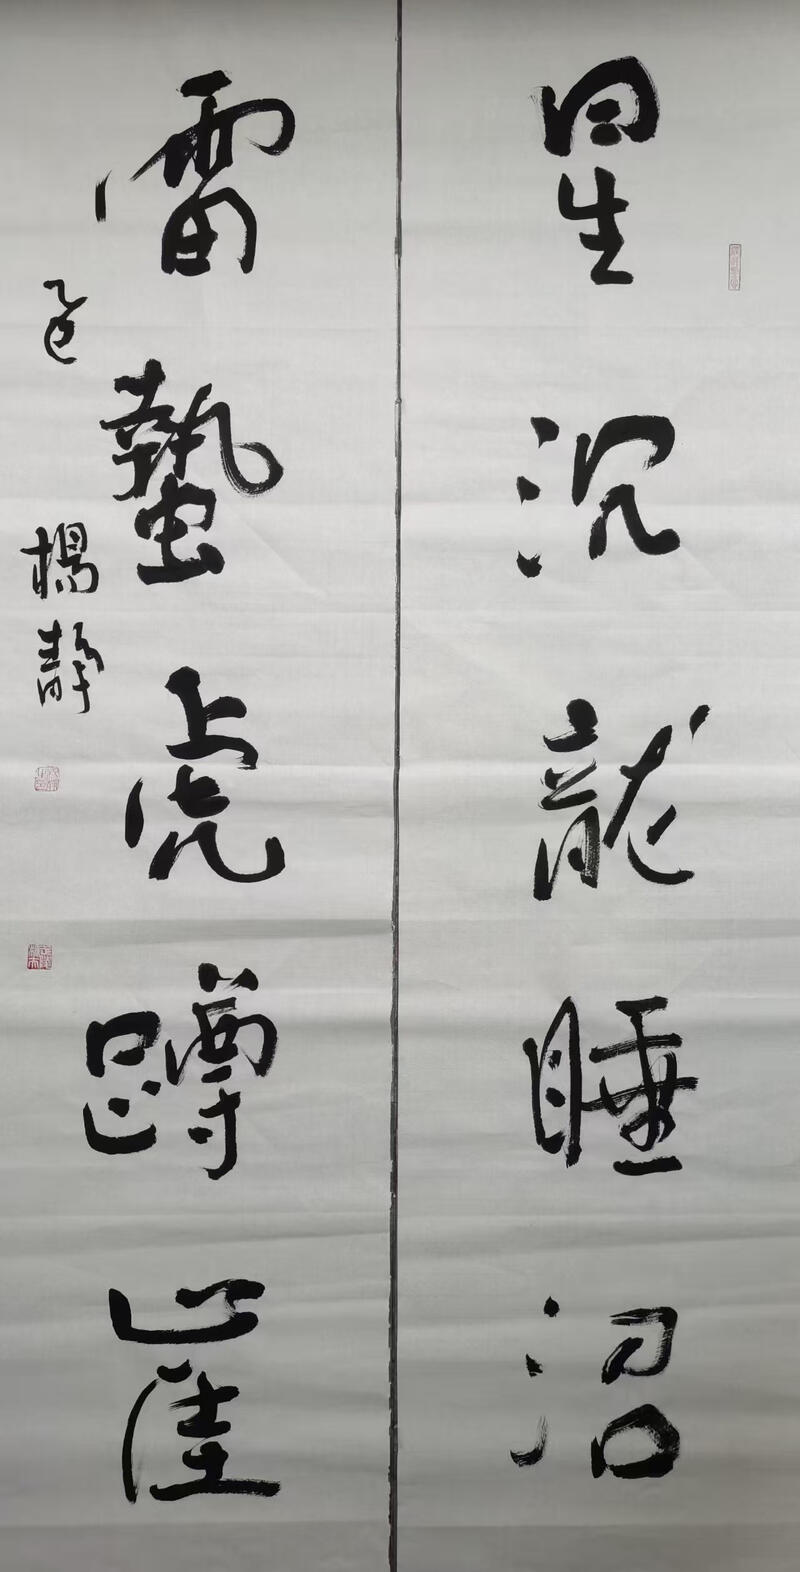 星沉龍睡沼
雷蟄虎蹲崖
乙巳
楊靜